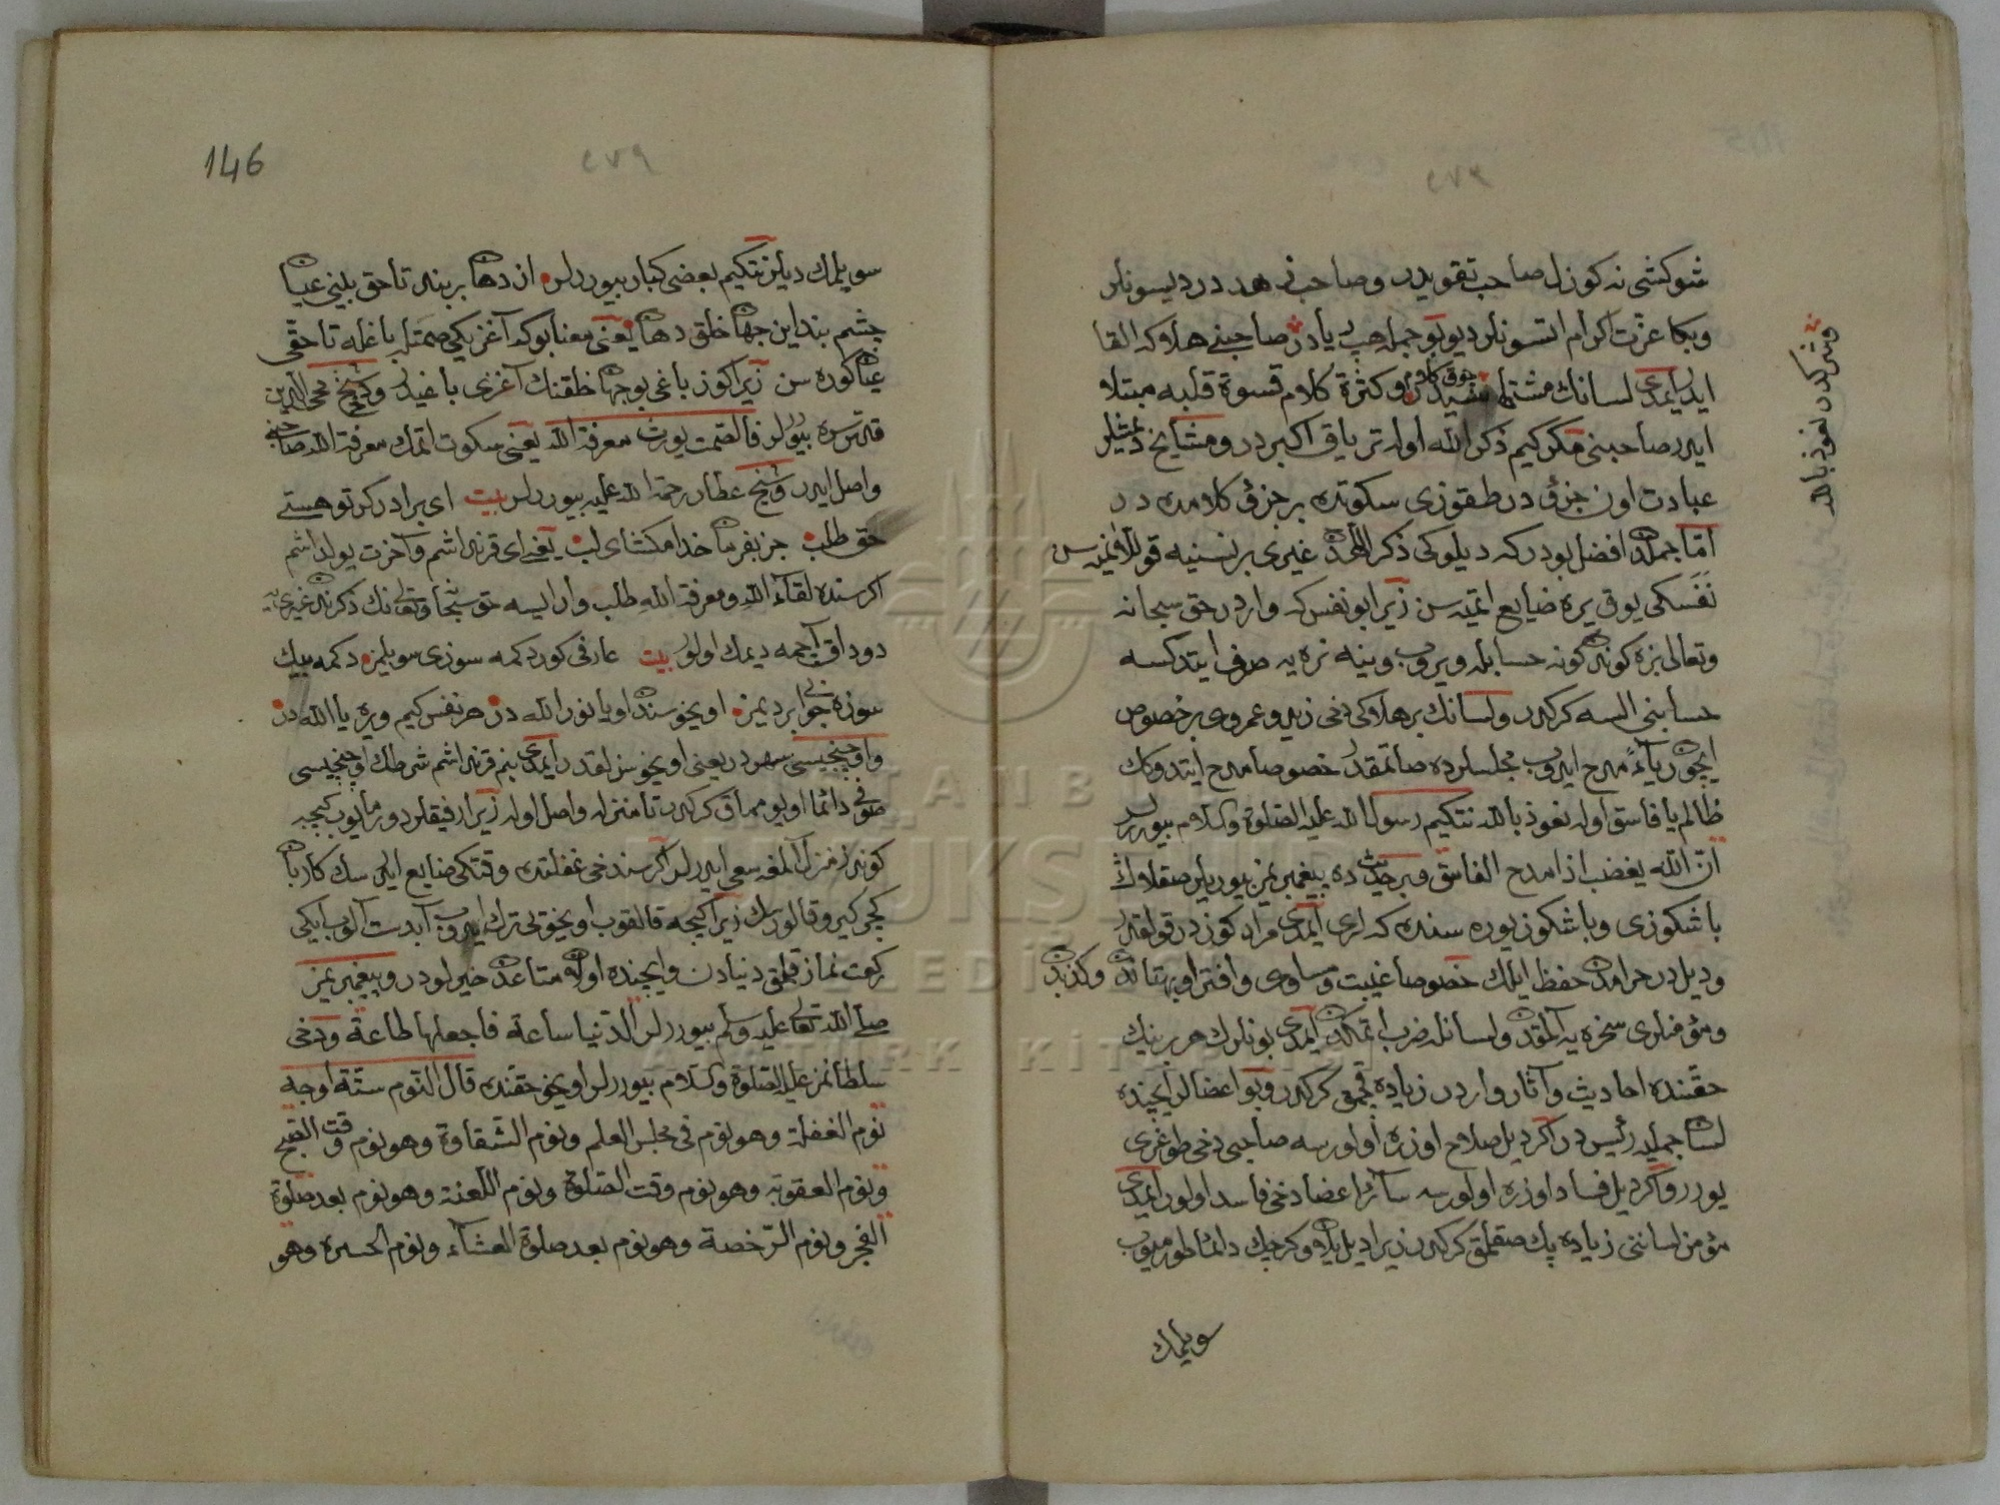 شوكشى نه كوزل صاحب تقويدر وصاحب زهددر ديسونلر
وبكا عزت اكرام اتسونلر ديو بو جمله حب يادر صاحبنى هلاكه القا
ايدر ايمدى لسانك وكثرة كلام قسوة قلبه مبتلا
ايدر صاحبنى مكر كيم ذكر الله اوله ترياق اكبردر ومشايخ ديمشلر
عبادت اون جزؤ در طقوزى سكوتده بر جزؤ كلامده در
امّا جمله‌دن افضل بودر كه ديلوكى ذكر اللهدن غيرى بر نسنيه قوللانميه سن
نَفَسكى يوق يره ضايع اتميه سن زيرا بو نفس كه واردر حق سبحانه
وتعالى بزه كوندن كونه حسابله ويروب وينه نره يه صرف ايتدكسه
حسابنى السه كركدر ولسانك بر هلاكى دخى زيد وعمروى بر خصوص
ايچون رياءً مدح ايدوب مجلسلرده صاتمقدر خصوصا مدح ايتدوكك
ظالم يا فاسق اوله نعوذ بالله نتكيم رسول الله عليه الصلوة والسلام بيوررلر
انّ الله يغضب اذا مدح الفاسق وبر حديث ده پيغمبريمز بيوريلر صقلاوك
باشكوزى وباشكوز يوره سنده كه لرى ايمدى مراد كوزدر قولقدر
وديلدر حرامدن حفظ ايلمك خصوصا غيبت ومساوى وافترا وبهتاندن وكذبدن
ومؤمنلرى سخره يه آلمقدن ولسانله ضرب اتمكدن ايمدى بونلرك هر برينك
حقّنده احاديث وآثار واردر زياده قچمق كركدر وبو اعضالر ايچنده
لسان جمله‌يه رئيس در اكر ديل صلاح اوزره اولورسه صاحبى دخى طوغرى
يورر واكر ديل فساد اوزره اولورسه سائر اعضا دخى فاسد اولور ايمدى
مؤمن لساننى زياده پك صقلمق كركدر زيرا ديل يلان وكرچك دائما طورميوب
سويلمك
وشركدن نعوذ بالله
146
٢٧٩
سويلمك ديلر نتكيم بعضى كبار بيوررلر از دهان بر بند تا حق بينى عيان
چشم بند اين جهان خلق دهان يعنى معنا بو كه آغزيكى صمتله باغله تا حقى
عيان كوره سن زيرا كوز باغى بو جهان خلقنك آغزى باغيدر وشيخ محى الدين
قدّس سره بيوررلر فالصمت يورث معرفة الله يعنى سكوت اتمك معرفة الله صاحبنه
واصل ايدر وشيخ عطار رحمة الله عليه بيوررلر بيت اى برادر كر تو هستى
حق طلب جز بفرمان خدا مكشاى لب يعنى اى قرنداشم وآخرت يولداشم
اكر سنده لقاء الله ومعرفة الله طلب وار ايسه حق سبحانه وتعالىنك ذكرندن غيرى يه
دوداق آچمه ديمك اولور بيت عارفى كور دكمه سوزى سويلمز دكمه بيك
سوزه جوابى بر ديمز اويخوسندن اويانور الله در هر نفس كيم ويره يا الله در
واوچنجيسى سهردر يعنى اويخوسزلقدر ايمدى بنم قرنداشم شرطك اوچنجيسى
صوفى دائما اويومماق كركدر تا منزله واصل اوله زيرا رفيقلر دورمايوب كيجه
كوندز منزل آلمغه سعى ايدرلر اكر سن دخى غفلتده وقتكى ضايع ايدرسك كاربان
كچر كيرو قالورسك زيرا كيجه قالقوب اويخويى ترك ايدوب آبدست آلوب ايكى
ركعت نماز قيلمق دنيادن وايچنده اولان متاعدن خيرلودر وپيغمبريمز
صلى الله تعالى عليه وسلم بيوررلر الدنيا ساعة فاجعلها طاعة ودخى
سلطانمز عليه الصلوة والسلام بيوررلر اويخو حقنده قال النوم ستّة اوجه
نوم الغفلة وهو نوم فى مجلس العلم ونوم الشقاوة وهو نوم وقت الصبح
ونوم العقوبة وهو نوم وقت الصلوة ونوم اللعنة وهو نوم بعد صلوة
الفجر ونوم الرّخصة وهو نوم بعد صلوة العشاء ونوم الحسرة وهو